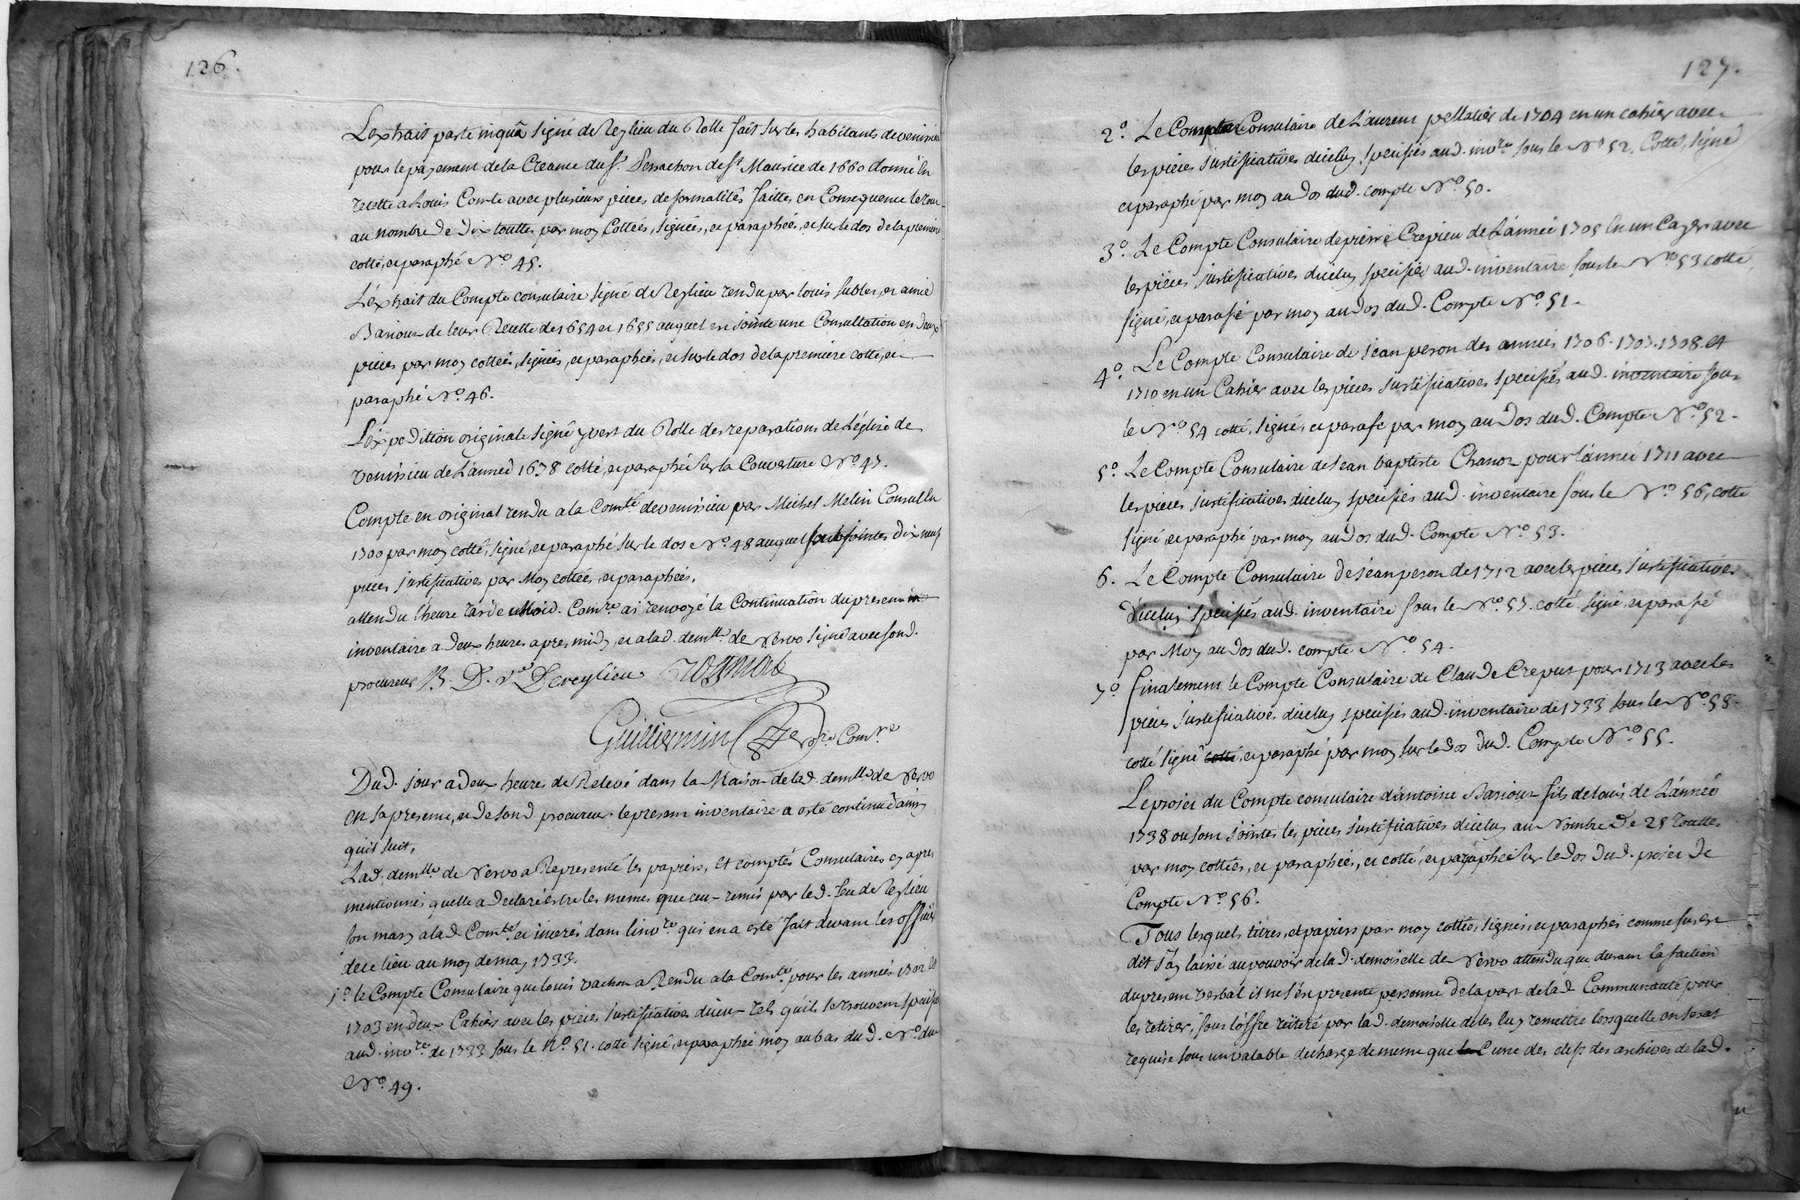 126.
Lextrait parte inqua signé de Reylieu du Rolle fait sur les habitants de venissieu
pour le payement de la Creance du Sr. Perrachon de St. Maurice de 1660 donné En
recette a Louis Comte avec plusieurs pieces de formalités faittes en Consequence le tout
au nombre de dix touttes par moy Cottées, signées, et paraphées, et sur le dos de la premiere
cotté, et paraphé No. 45.
L'extrait du Compte consulaire signé de Reylieu rendu par louis sublet, et aimé
Bariour de leur Recette de 1654 et 1655 auquel est jointe une Consultation en deux
pieces par moy cottées, signées, et paraphées, et sur le dos de la premiere cotté, et
paraphé No. 46.
L'expedition originale signé yvert du Rolle des reparations de L'église de
venissieu de L'année 1678 cotté, et paraphé sur la Couverture No. 47.
Compte en original rendu a la Comté. de venissieu par Michel Melin Consul En
1700 par moy cotté, signé, et paraphé sur le dos No. 48 auquel sont jointes dix neuf
pieces justificatives par Moy cottées, et paraphées.
attendu lheure tarde Comre. ai renvoyé la Continuation du present
inventaire a deux heures apres midy, et a lad. demlle. de Servo signé avec sond.
procureur B. D. ve. Dereylieu
Guillermin Comre
Dud. jour a deux heures de Relevé dans la Maison de lad. demlle. de Servo
en sa presence, et de sond. procureur le present inventaire a esté continué ainsy
quil suit,
Lad. demlle. de Servo a Representé les papiers, et comptes Consulaires cy apres
mentionnés quelle a declaré estre les memes que ceux remis par led. feu de Reylieu
son mary a lad. Comté. et inserés dans linvre. qui en a esté fait devant les officiers
de ce lieu au moy de may 1733.
1o. le Compte Consulaire que louis vachon a Rendu a la Comté. pour les années 1702 et
1703 en deux Cahiers avec les pieces justificatives diceux tels quils se trouvent specifiés
aud. invre. de 1733 sous le No. 51. cotté signé, et paraphée moy au bas du d. No. du
No. 49.
127.
2o. Le Compte Consulaire de Laurent pellatier de 1704 en un cahier avec
les pieces justificatives dicelluy specifiés aud. invre. sous le No. 52. Cotté, signé
et paraphé par moy au dos dud. compte No. 50.
3o. Le Compte Consulaire de pierre Crepieu de L'année 1705 En un Cayer avec
les pieces justificatives dicelluy specifiés aud. inventaire sous le No. 53 cotté
signé, et parafé par moy au dos dud. Compte No. 51.
4o. Le Compte Consulaire de jean peron des années 1706. 1707. 1708. et
1710 en un Cahier avec les pieces justificatives specifiés aud. inventaire sous
le No. 54 cotté, signé, et parafé par moy au dos dud. Compte No. 52.
5o. Le Compte Consulaire de jean baptiste Chanoz pour l'année 1711 avec
les pieces justificatives dicelluy specifiés aud. inventaire sous le No. 56, cotté
signé, et paraphé par moy au dos dud. Compte No. 53.
6. Le Compte Consulaire de jean peron de 1712 avec les pieces justificatives
dicelluy specifiés aud. inventaire sous le No. 57. cotté signé et parafé
par Moy au dos dud. compte No. 54.
7o finalement le Compte Consulaire de Claude Crepus pour 1713 avec les
pieces justificatives dicelluy specifiés aud. inventaire de 1733 sous le No. 58.
cotté signé cotté, et paraphé par moy sur le dos dud. Compte No. 55.
Le projet du Compte consulaire d'antoine Bariour fils de louis de L'année
1738 ou sont jointes les pieces justificatives dicelluy au Nombre de 25 toutes
par moy cottées, et paraphées, et cotté, et paraphée sur le dos dud. projet de
Compte No. 56.
Tous lesquels titres, et papiers par moy cottés, signés, et paraphés comme sus est
dit j'ay laissé au pouvoir de lad. demoiselle de Servo attendu que durant la faction
du present verbal il ne s'en presenté personne de la part de lad. Communauté pour
les retirer, sous l'offre reiteré par lad. demoiselle de les luy remettre lors quelle en sera
requise sous un valable decharge de meme que l'une des clefs des archives de lad.